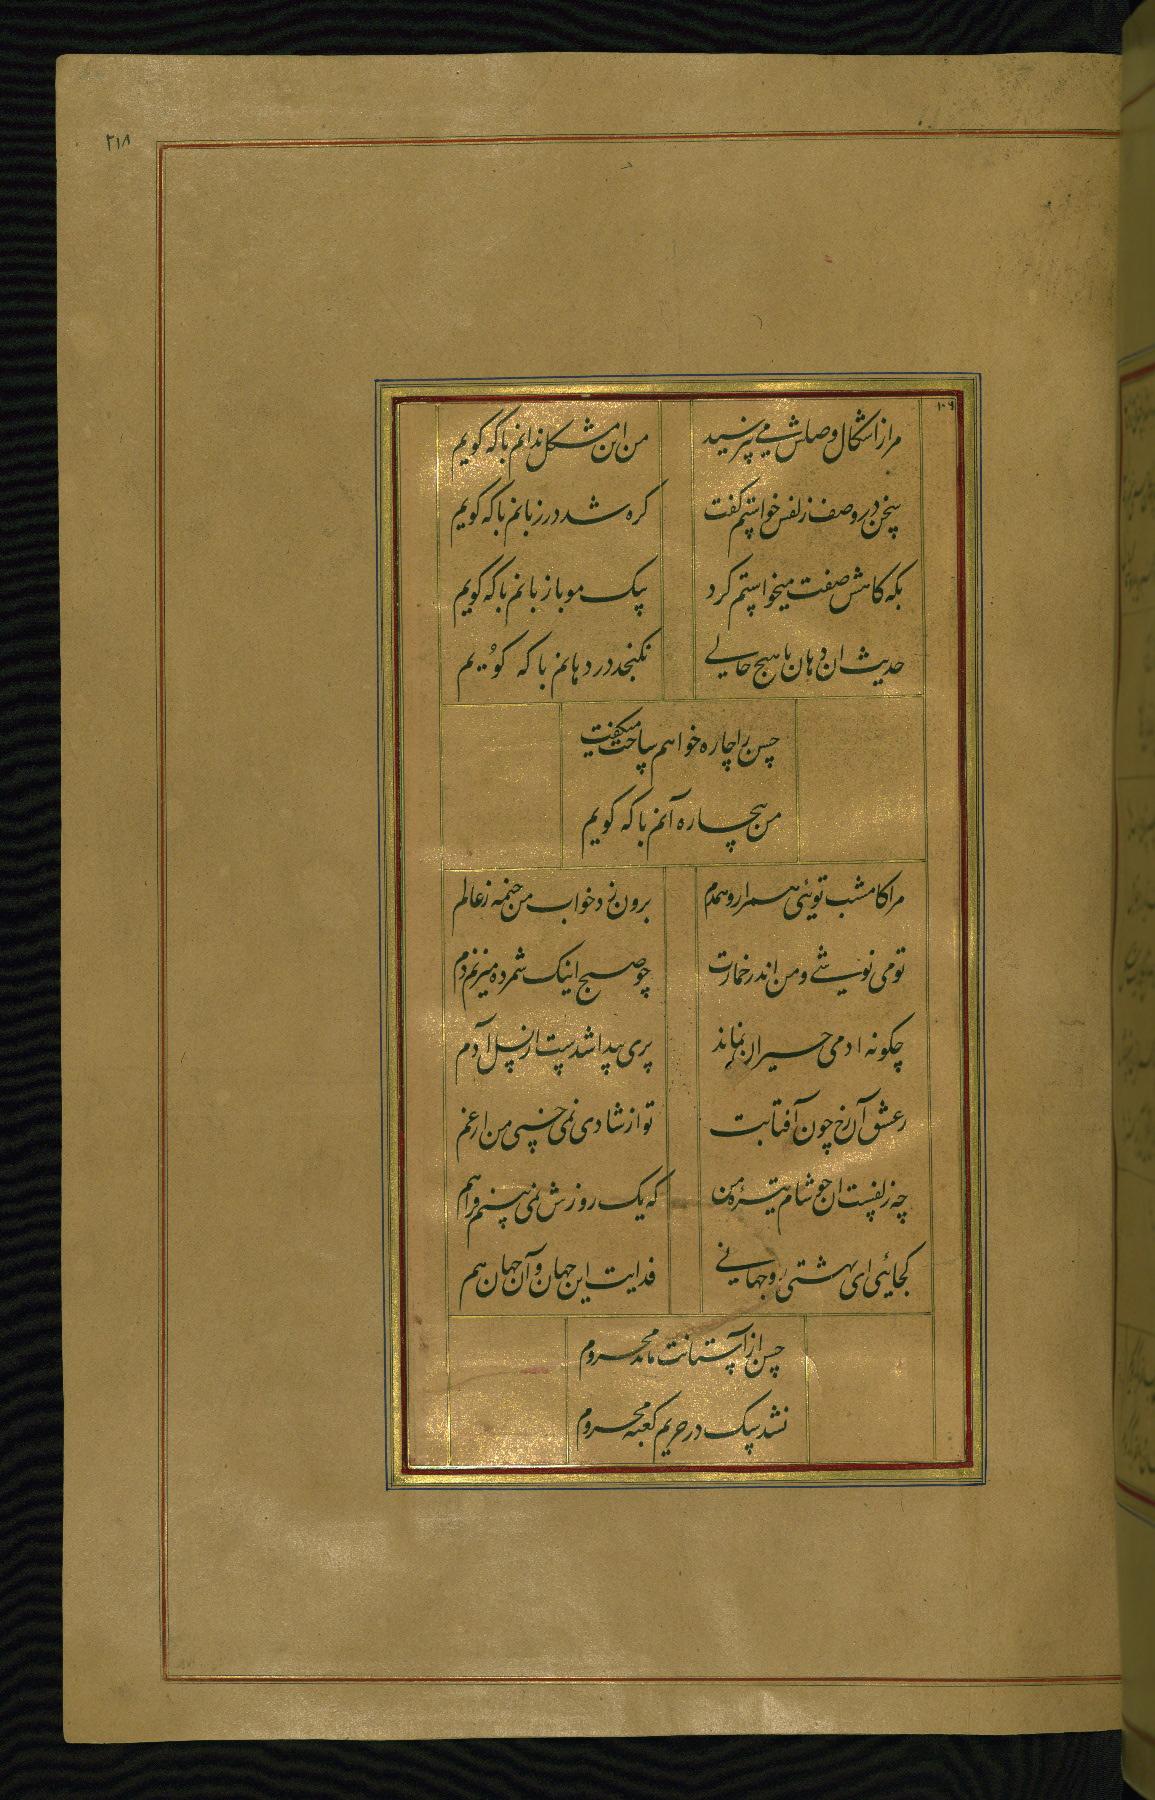 ۲۱۸
۱۰۶
مرا ز اشکال وصلش می پرسید
من این مشکل ندانم با که کویم
سخن در وصف زلفس خواستم کفت
کره شد در زبانم با که کویم
بکه کاهش صفت میخواستم کرد
یک مو باز بانم با که کویم
حدیث ان دهان با هیچ حالی
نکنجد در دهانم با که کویم
حسن را چاره خواهم ساخت میکفت
من بیچاره آنم با که کویم
مرا کامشب توئی همراز و همدم
برون زد خواب من خیمه ز عالم
تو می نوشی و من اندر خمارت
چو صبح اینک شمرده میزنم دم
چکونه ادمی حیران نماند
پری پیدا شدست از نسل آدم
ز عشق آن رخ چون آفتابت
تو از شادی نمی خسپی من از غم
چه زلفست ان چو شام تیره من
که یک روزش نمی بینم فراهم
کجائی ای بهشتی رو جهانی
فدایت این جهان و آن جهان هم
حسن از آستانت ماند محروم
نشد یک در حریم کعبه محروم